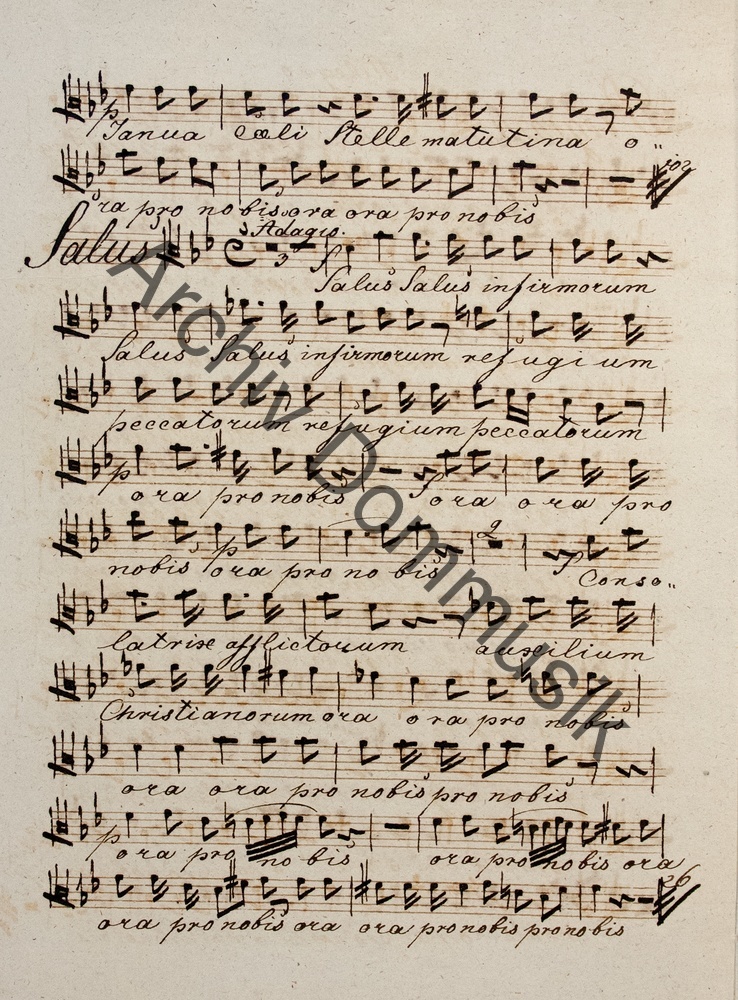 p
Janua cœli Stelle matutina o,,
ra pro nobis ora ora pro nobis
Salus
Adagio.
3
f
Salus Salus infirmorum
Salus Salus infirmorum refugium
peccatorum refugium peccatorum
p f
ora pro nobis ora ora pro
p 2 f
nobis ora pro nobis Conso,,
latrix afflictorum auxilium
Christianorum ora ora pro nobis
ora ora pro nobis pro nobis
p
ora pro nobis ora pro nobis ora
26
ora pro nobis ora ora pro nobis pro nobis
Archiv Dommusik